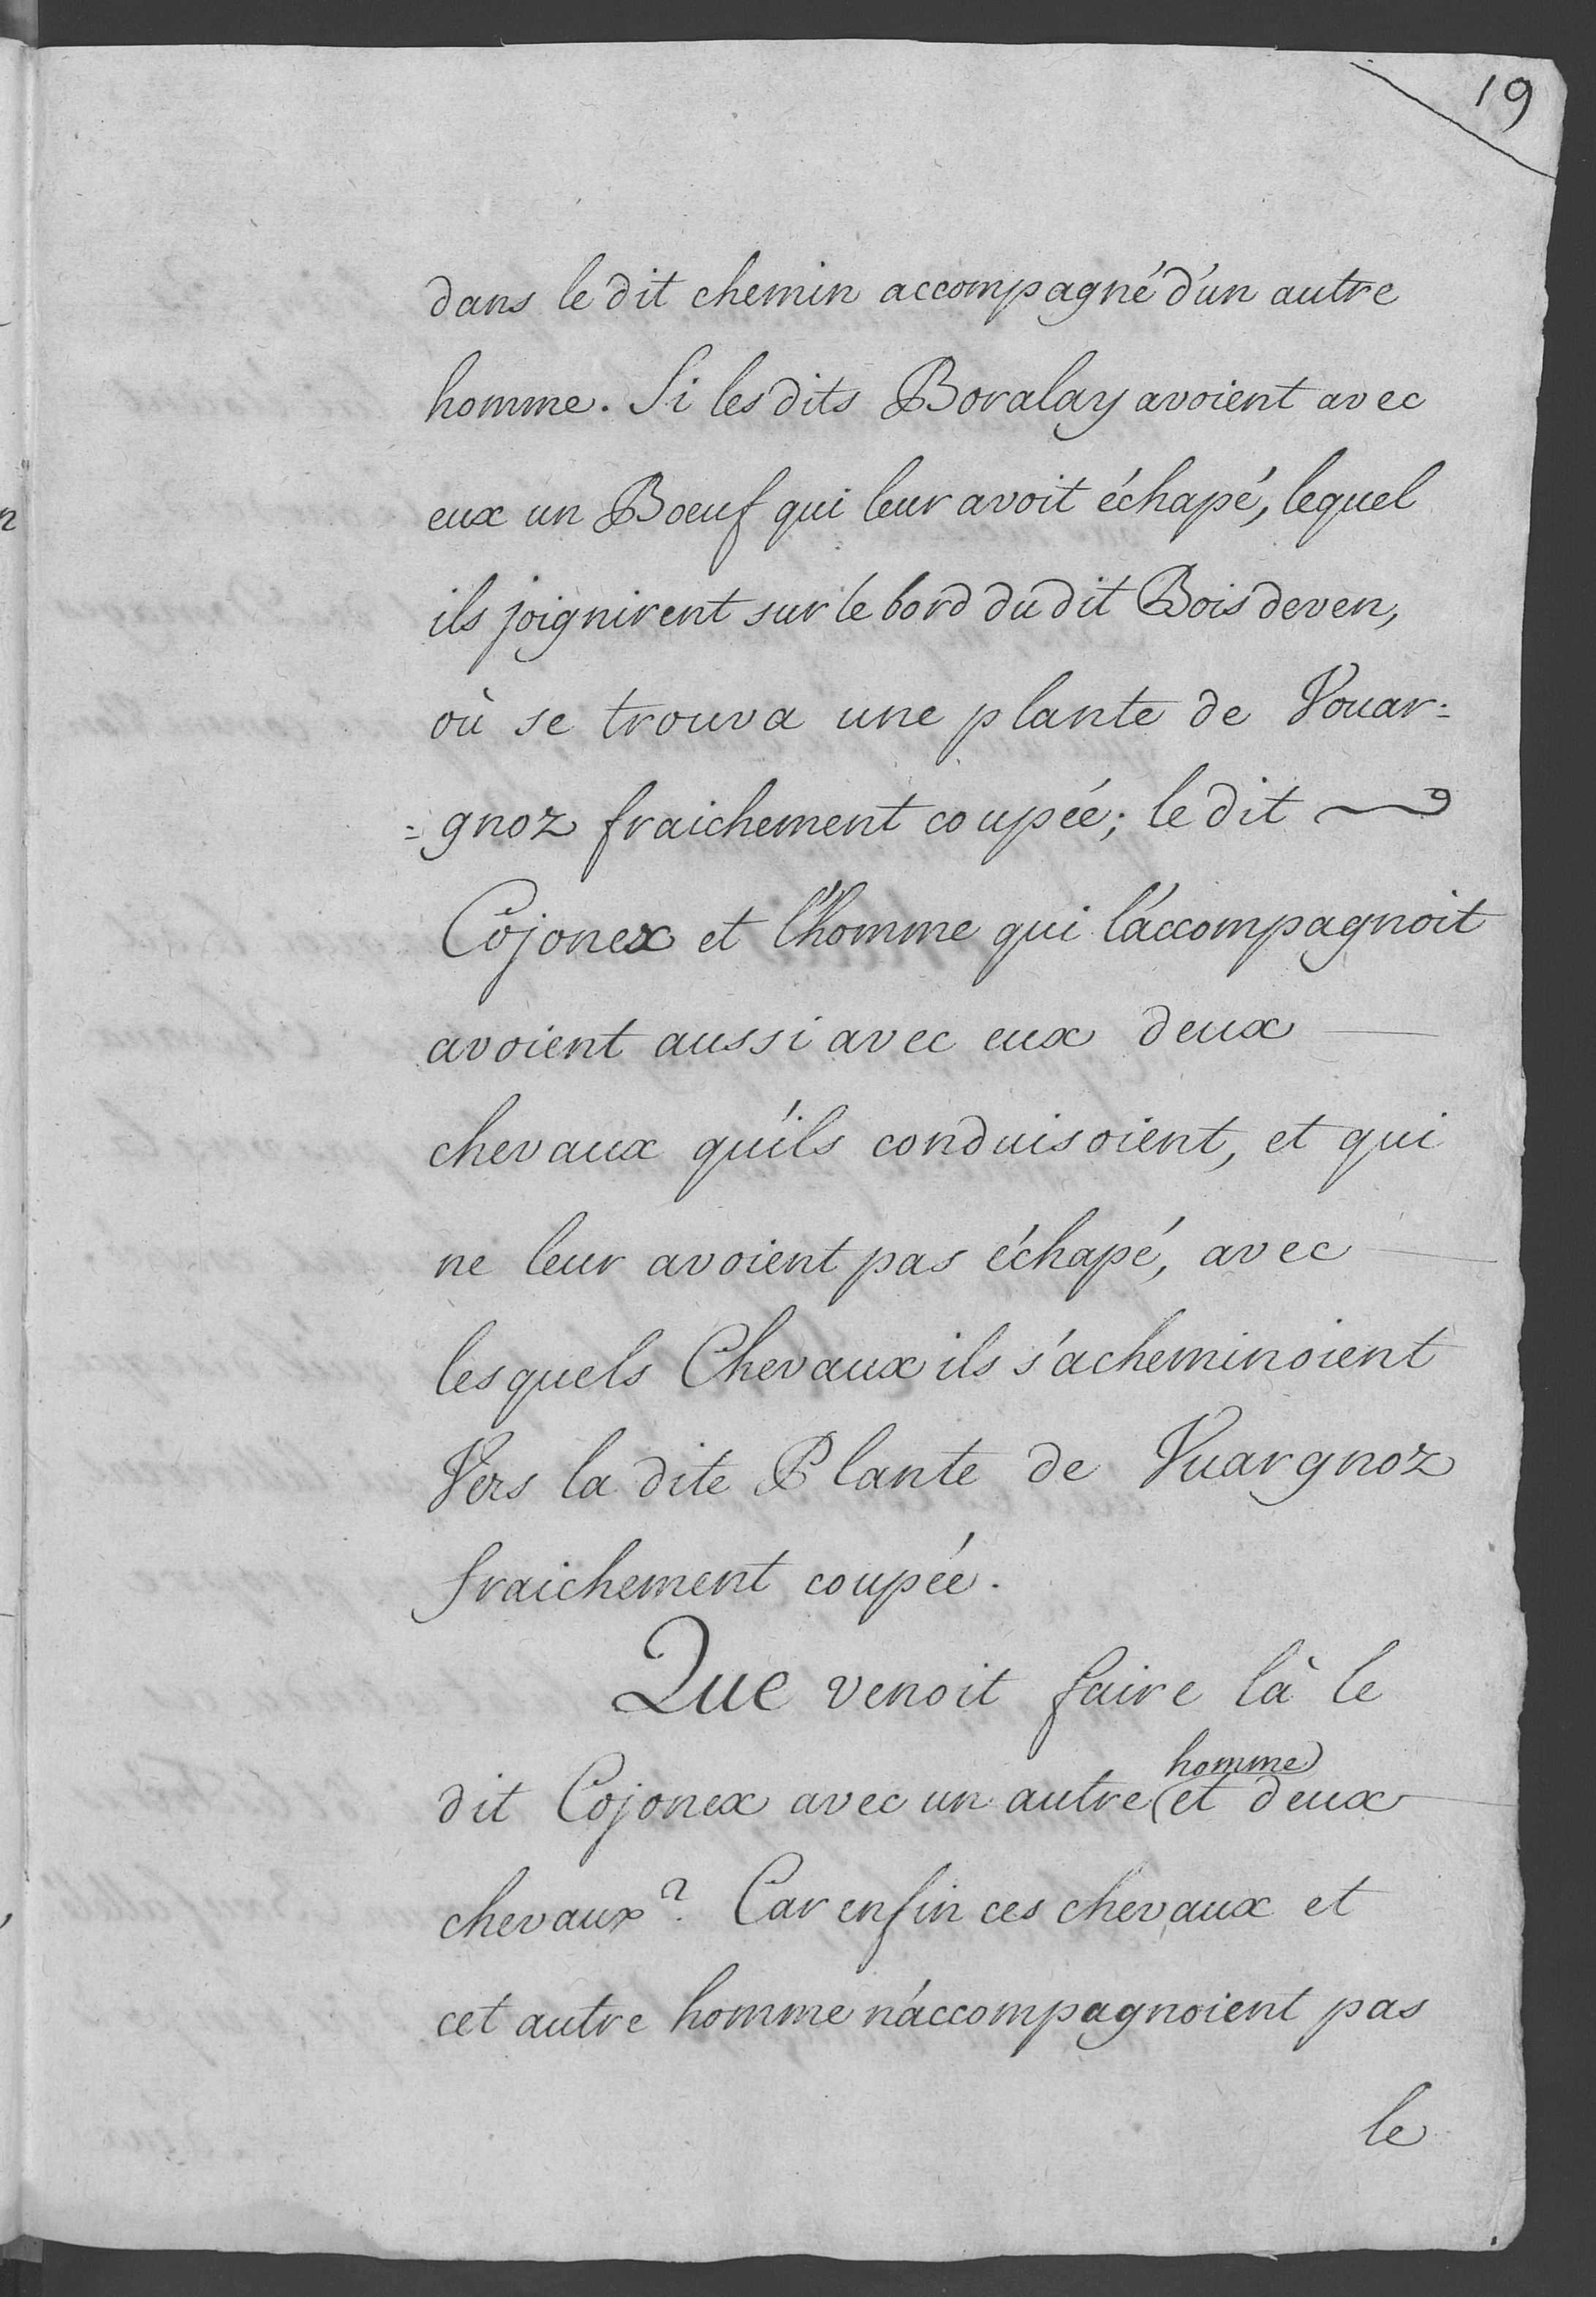 19
dans le dit chemin accompagné d'un autre
homme. Si les dits Boralay avoient avec
eux un Boeuf qui leur avoit échapé, lequel
ils joignirent sur le bord du dit Bois deven,
où se trouva une plante de Vouar=
=gnoz fraichement coupée; le dit
Cojonex et l'homme qui l'accompagnoit
avoient aussi avec eux deux
chevaux qu'ils conduisoient, et qui
ne leur avoient pas échapé, avec
lesquels Chevaux ils s'acheminoient
Vers la dite Plante de Vuargnoz
fraichement coupée.
Que venoit faire là le
homme
dit Cojonex avec un autre et deux
chevaux? Car enfin ces chevaux et
cet autre homme n'accompagnoient pas
le